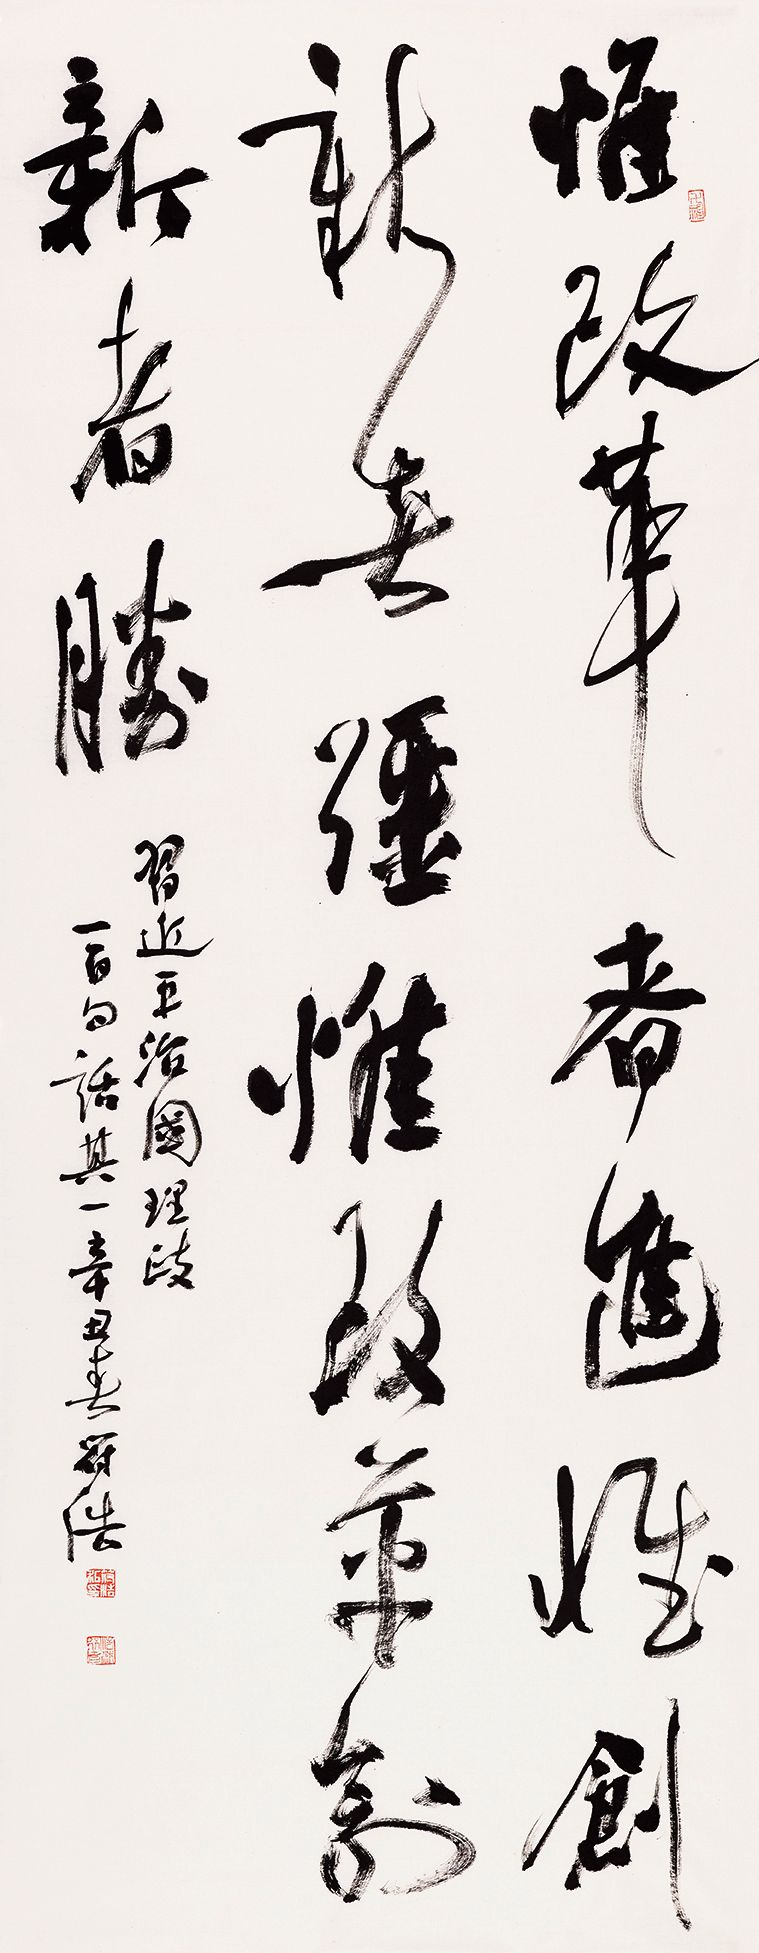 惟改革者進惟創
新者強惟改革創
新者勝
習近平治國理政
一百句話其一辛丑春符浩